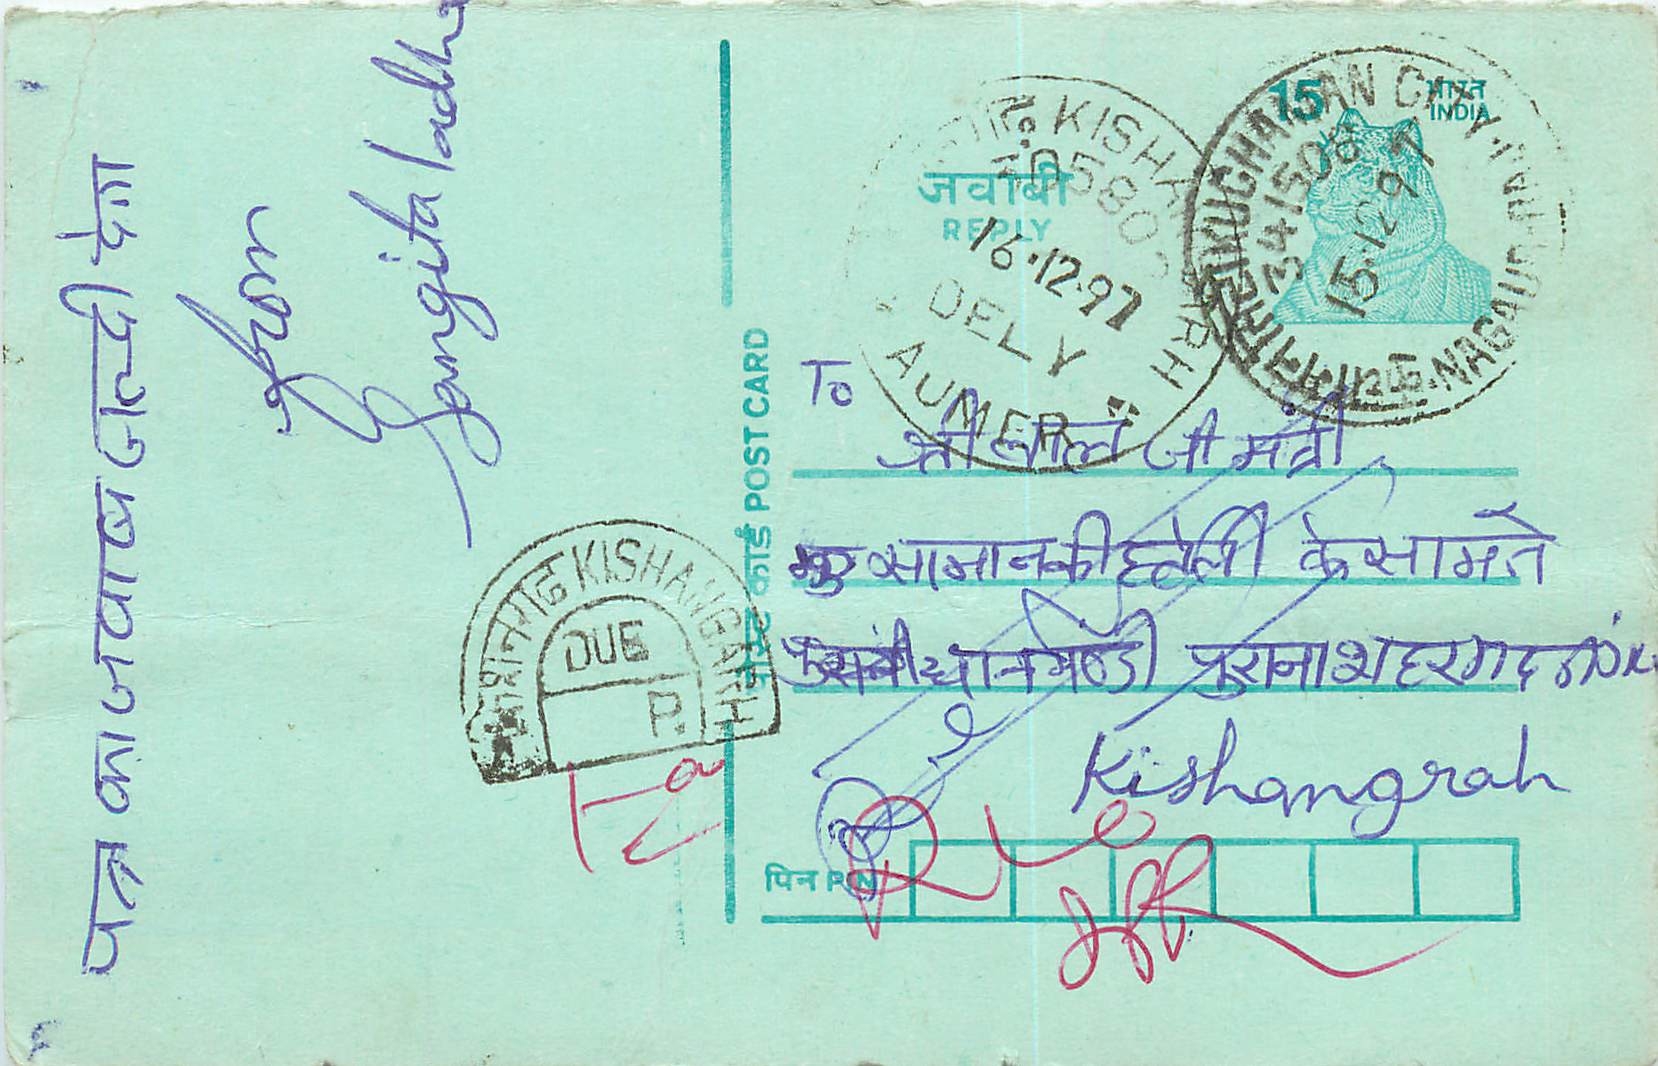 पत्र का जवाब जल्दी देना
From
Sangita ladha
15
भारत
INDIA
जवाबी
REPLY
KUCHAMAN CITY
341508
15.12.97
NAGAUR
KISHANGARH
16.12.97
DELY
AJMER
किशनगढ़ KISHANGARH
DUE
P.
पोस्ट कार्ड POST CARD
To
श्री लाल जी मंत्री
की हवेली के सामने
धानमण्डी पुराना शहर
Kishangrah
पिन PIN